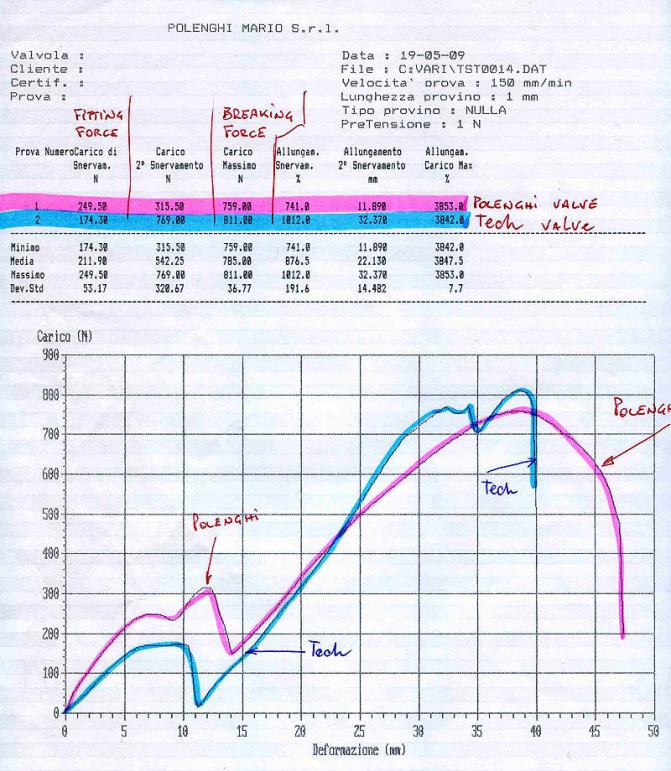 POLENGHI MARIO S.r.l.
Valvola :
Cliente :
Certif. :
Prova :
Data : 19-05-09
File : C:VARI\TST0014.DAT
Velocita' prova : 150 mm/min
Lunghezza provino : 1 mm
Tipo provino : NULLA
PreTensione : 1 N
FITTING FORCE
BREAKING FORCE
Prova Numero Carico di Carico Carico Allungam. Allungamento Allungam.
Snervam. 2° Snervamento Massimo Snervam. 2° Snervamento Carico Max
N N N % mm %
1 249.50 315.50 759.00 741.0 11.890 3853.0 POLENGHI VALVE
2 174.30 769.00 811.00 1012.0 32.370 3842.0 Tech VALVE
Minimo 174.30 315.50 759.00 741.0 11.890 3842.0
Media 211.90 542.25 785.00 876.5 22.130 3847.5
Massimo 249.50 769.00 811.00 1012.0 32.370 3853.0
Dev.Std 53.17 320.67 36.77 191.6 14.482 7.7
Carico (N)
900
800
700
600
500
400
300
200
100
0
POLENG
Tech
POLENGHI
Tech
0 5 10 15 20 25 30 35 40 45 50
Deformazione (mm)